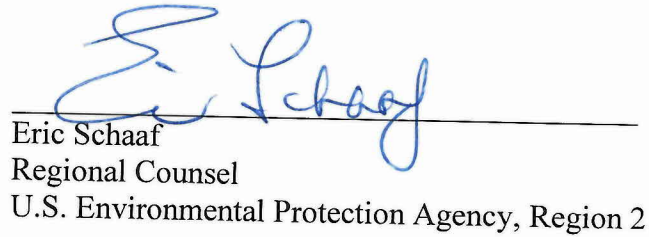 Eric Schaaf
Eric Schaaf
Regional Counsel
U.S. Environmental Protection Agency, Region 2